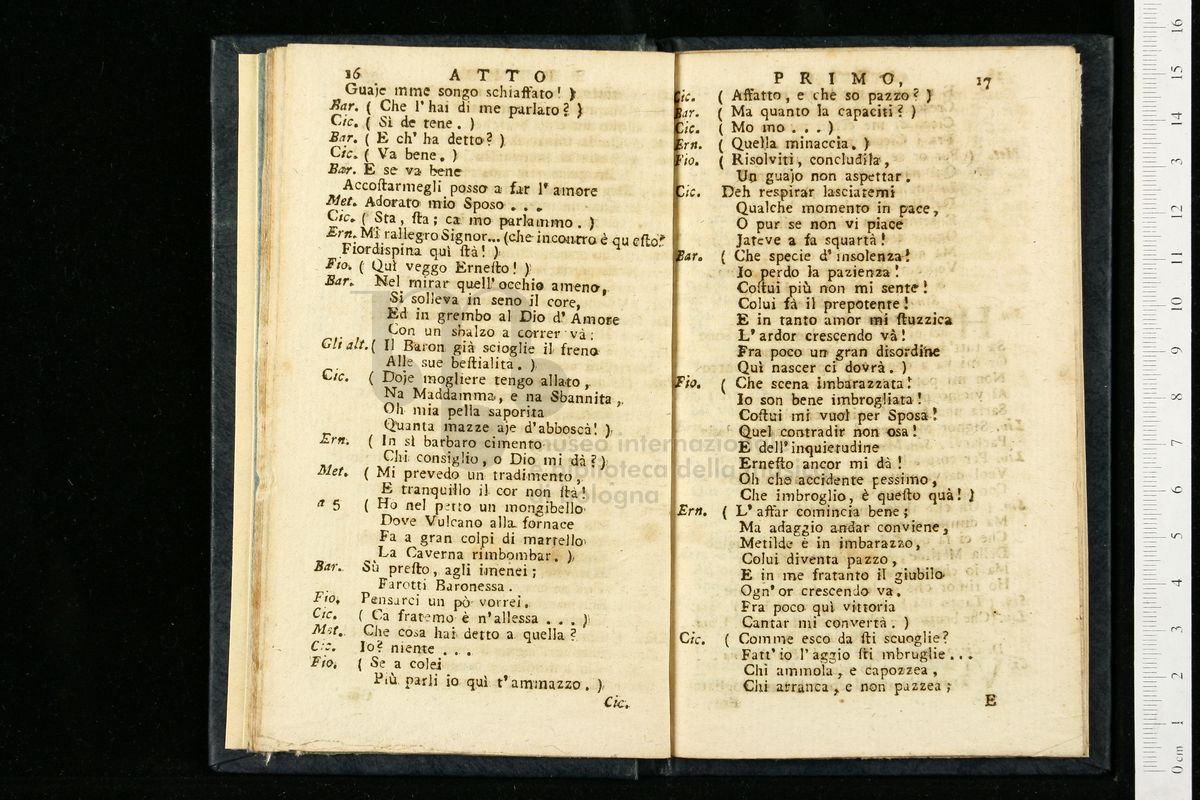 16 ATTO
Guaje mme songo schiaffato! )
Bar. ( Che l'hai di me parlato? )
Cic. ( Sì de tene. )
Bar. ( E ch' ha detto? )
Cic. ( Va bene. )
Bar. E se va bene
Accoſtarmegli posso a far l'amore
Met. Adorato mio Sposo . . .
Cic. ( Sta, ſta; ca mo parlammo. )
Ern. Mi rallegro Signor... (che incontro è queſto?
Fiordispina quì ſtà! )
Fio. ( Quì veggo Erneſto! )
Bar. Nel mirar quell'occhio ameno,
Si solleva in seno il core,
Ed in grembo al Dio d'Amore
Con un sbalzo a correr và:
Gli alt. ( Il Baron già scioglie il freno
Alle sue beſtialità. )
Cic. ( Doje mogliere tengo allato,
Na Maddamma, e na Sbannita,
Oh mia pella saporita
Quanta mazze aje d'abboscà! )
Ern. ( In sì barbaro cimento
Chi consiglio, o Dio mi dà? )
Met. ( Mi prevedo un tradimento,
E tranquillo il cor non ſtà!
a 5 ( Ho nel petto un mongibello
Dove Vulcano alla fornace
Fa a gran colpi di martello
La Caverna rimbombar. )
Bar. Sù preſto, agli imenei;
Farotti Baronessa.
Fio. Pensarci un pò vorrei.
Cic. ( Ca fratemo è n'allessa . . . )
Met. Che cosa hai detto a quella?
Cic. Io? niente . . .
Fio. ( Se a colei
Più parli io quì t'ammazzo. )
Cic.
PRIMO, 17
Cic. ( Affatto, e che so pazzo? )
Bar. ( Ma quanto la capaciti? )
Cic. ( Mo mo . . . )
Ern. ( Quella minaccia. )
Fio. ( Risolviti, concludila,
Un guajo non aspettar.
Cic. Deh respirar lasciatemi
Qualche momento in pace,
O pur se non vi piace
Jateve a fa squartà!
Bar. ( Che specie d'insolenza!
Io perdo la pazienza!
Coſtui più non mi sente!
Colui fà il prepotente!
E in tanto amor mi ſtuzzica
L'ardor crescendo và!
Fra poco un gran disordine
Quì nascer ci dovrà. )
Fio. ( Che scena imbarazzata!
Io son bene imbrogliata!
Coſtui mi vuol per Sposa!
Quel contradir non osa!
E dell'inquietudine
Erneſto ancor mi dà!
Oh che accidente pessimo,
Che imbroglio, è queſto quà! )
Ern. ( L'affar comincia bene;
Ma adaggio andar conviene,
Metilde è in imbarazzo,
Colui diventa pazzo,
E in me fratanto il giubilo
Ogn'or crescendo va.
Fra poco quì vittoria
Cantar mi converrà. )
Cic. ( Comme esco da ſti scuoglie?
Fatt'io l'aggio ſti mbruglie...
Chi ammola, e capozzea,
Chi arranca, e non pazzea;
E